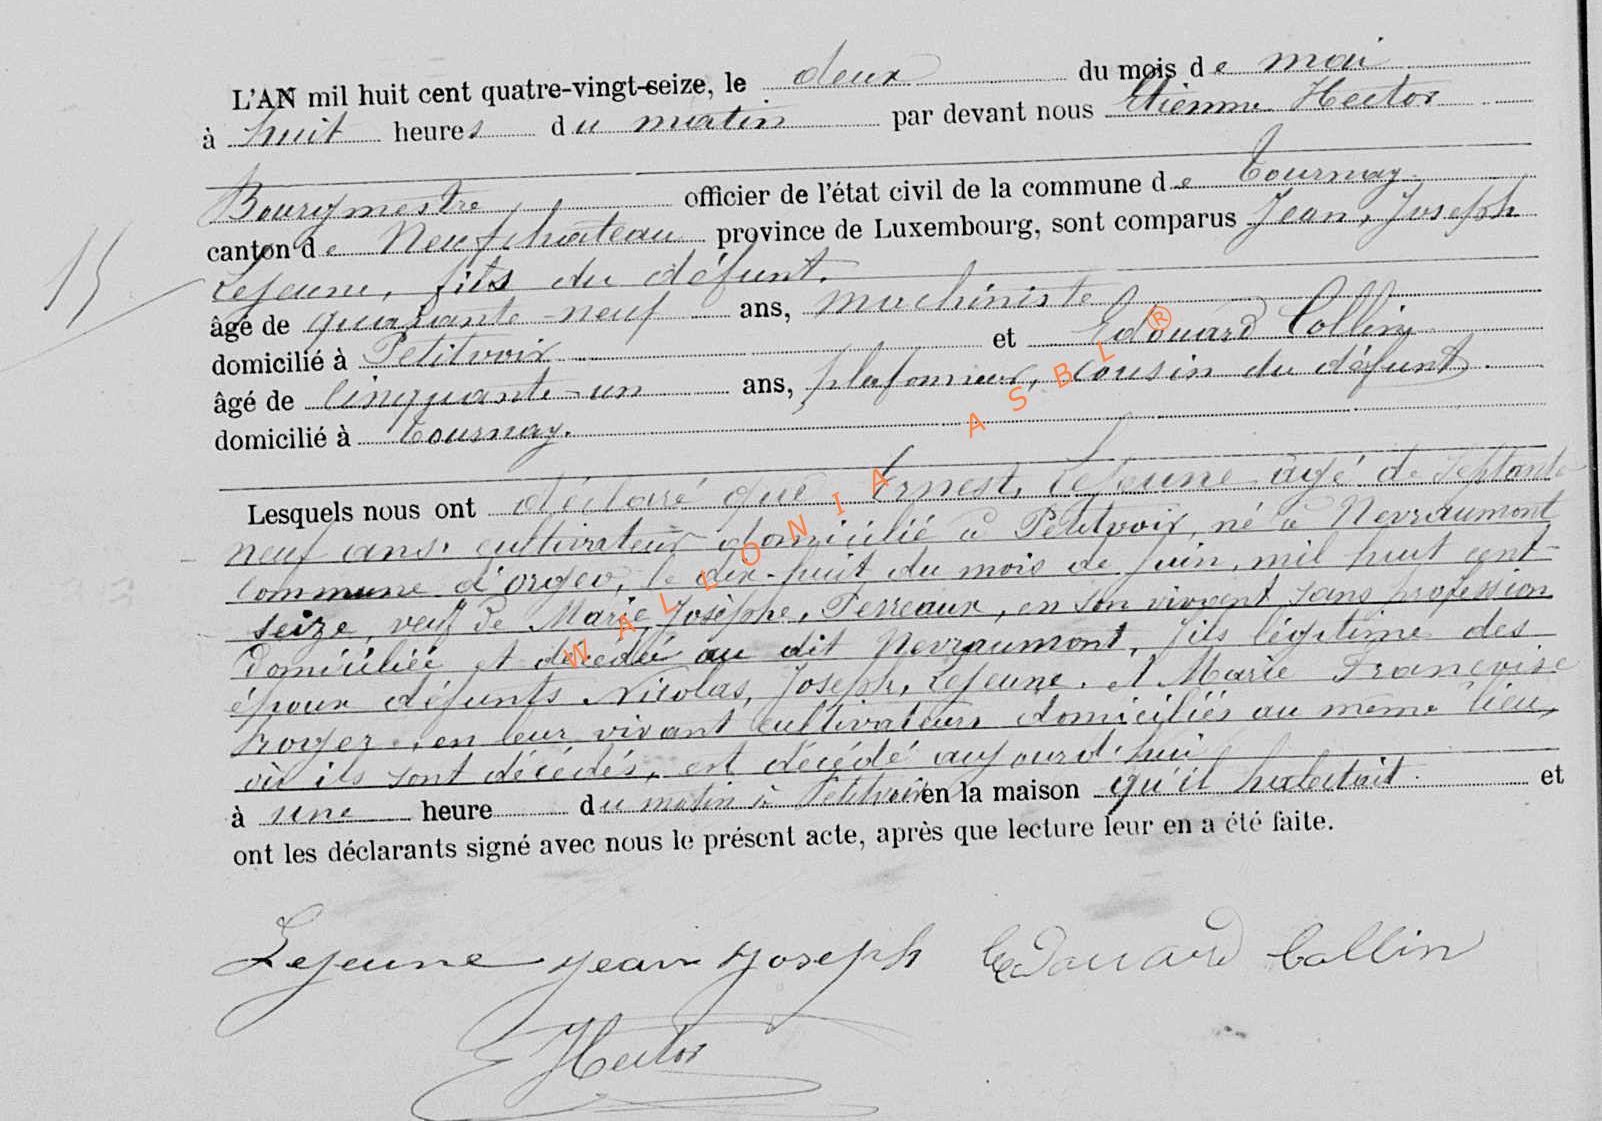 L'AN mil huit cent quatre-vingt-seize, le deux du mois de mai
à huit heures du matin par devant nous Etienne Hector
Bourgmestre officier de l'état civil de la commune de Tournay
canton de Neufchâteau province de Luxembourg, sont comparus Jean, Joseph
Lejeune, fils du défunt.
âgé de quarante-neuf ans, machiniste
domicilié à Petitvoir et Edouard Collin
âgé de cinquante-un ans, plafonneur, cousin du défunt.
domicilié à Tournay.
15
Lesquels nous ont déclaré que Ernest, Lejeune âgé de septante
neuf ans, cultivateur domicilié à Petitvoir, né à Nevraumont
commune d'orgeo, le dix-huit du mois de juin, mil huit cent
seize, veuf de Marie Josèphe, Perreaux, en son vivant sans profession
domiciliée et décédée au dit Nevraumont, fils légitime des
époux défunts Nicolas, Joseph, Lejeune, et Marie Françoise
royer, en leur vivant cultivateurs domiciliés au même lieu,
où ils sont décédés, est décédé aujourd'hui
à une heure du matin à Petitvoir en la maison qu'il habitait. et
ont les déclarants signé avec nous le présent acte, après que lecture leur en a été faite.
Lejeune jean joseph Edouard Collin
E Hector
WALLONIA ASBL ®